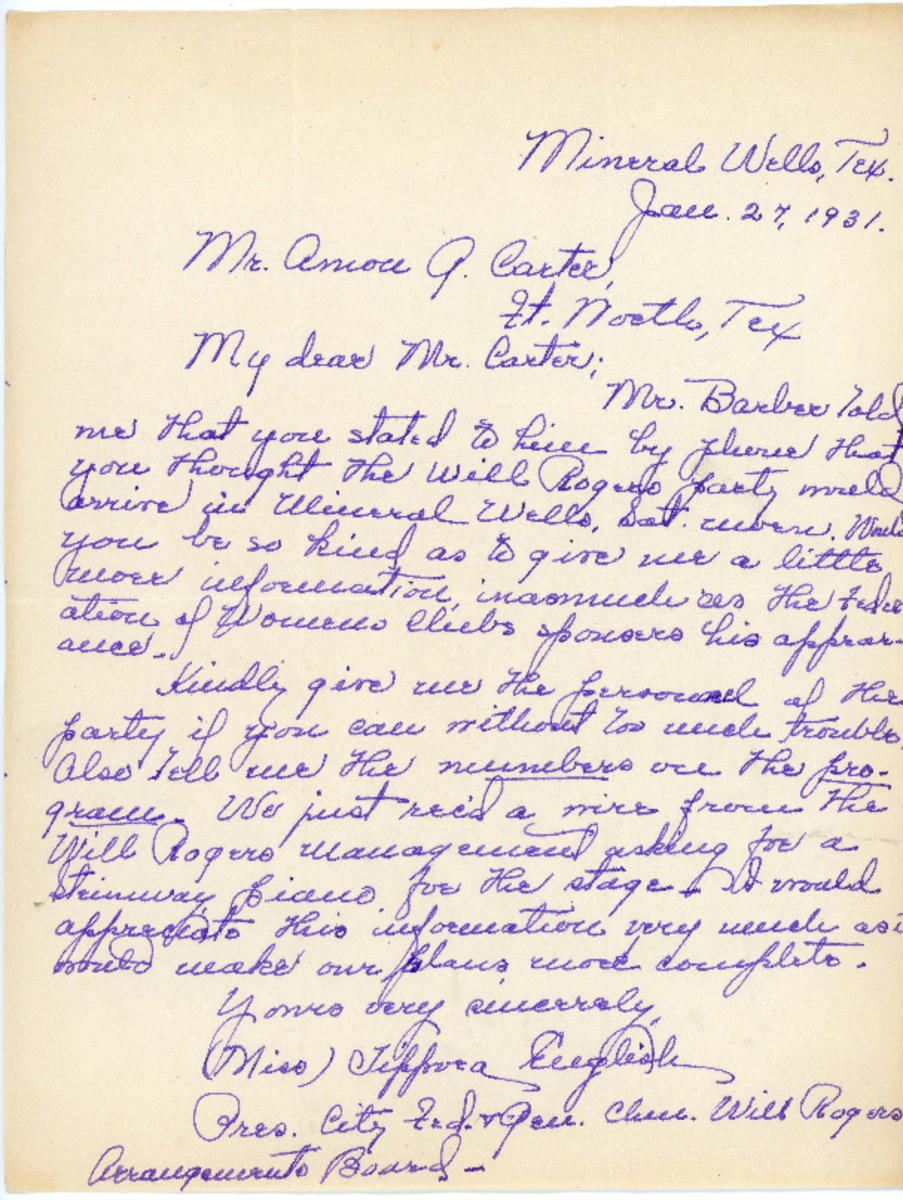 Mineral Wells, Tex.
Jan. 27, 1931.
Mr. Amon G. Carter,
Ft. Worth, Tex
My dear Mr. Carter;
Mr. Barber told
me that you stated to him by phone that
you thought the Will Rogers party would
arrive in Mineral Wells, Sat. morn. Would
you be so kind as to give me a little
more information, inasmuch as the Feder
ation of Womens Clubs sponsers his appear-
ance.
Kindly give me the personnel of the
party if you can without too much trouble.
Also tell me the numbers on the pro-
gram. We just rec'd a wire from the
Will Rogers management asking for a
Steinway piano for the stage. I would
appreciate this information very much as i
would make our plans more complete.
Yours very sincerely,
(Miss) Zippora English
Pres. City Fed. & Gen. Chm. Will Rogers
Arrangements Board -